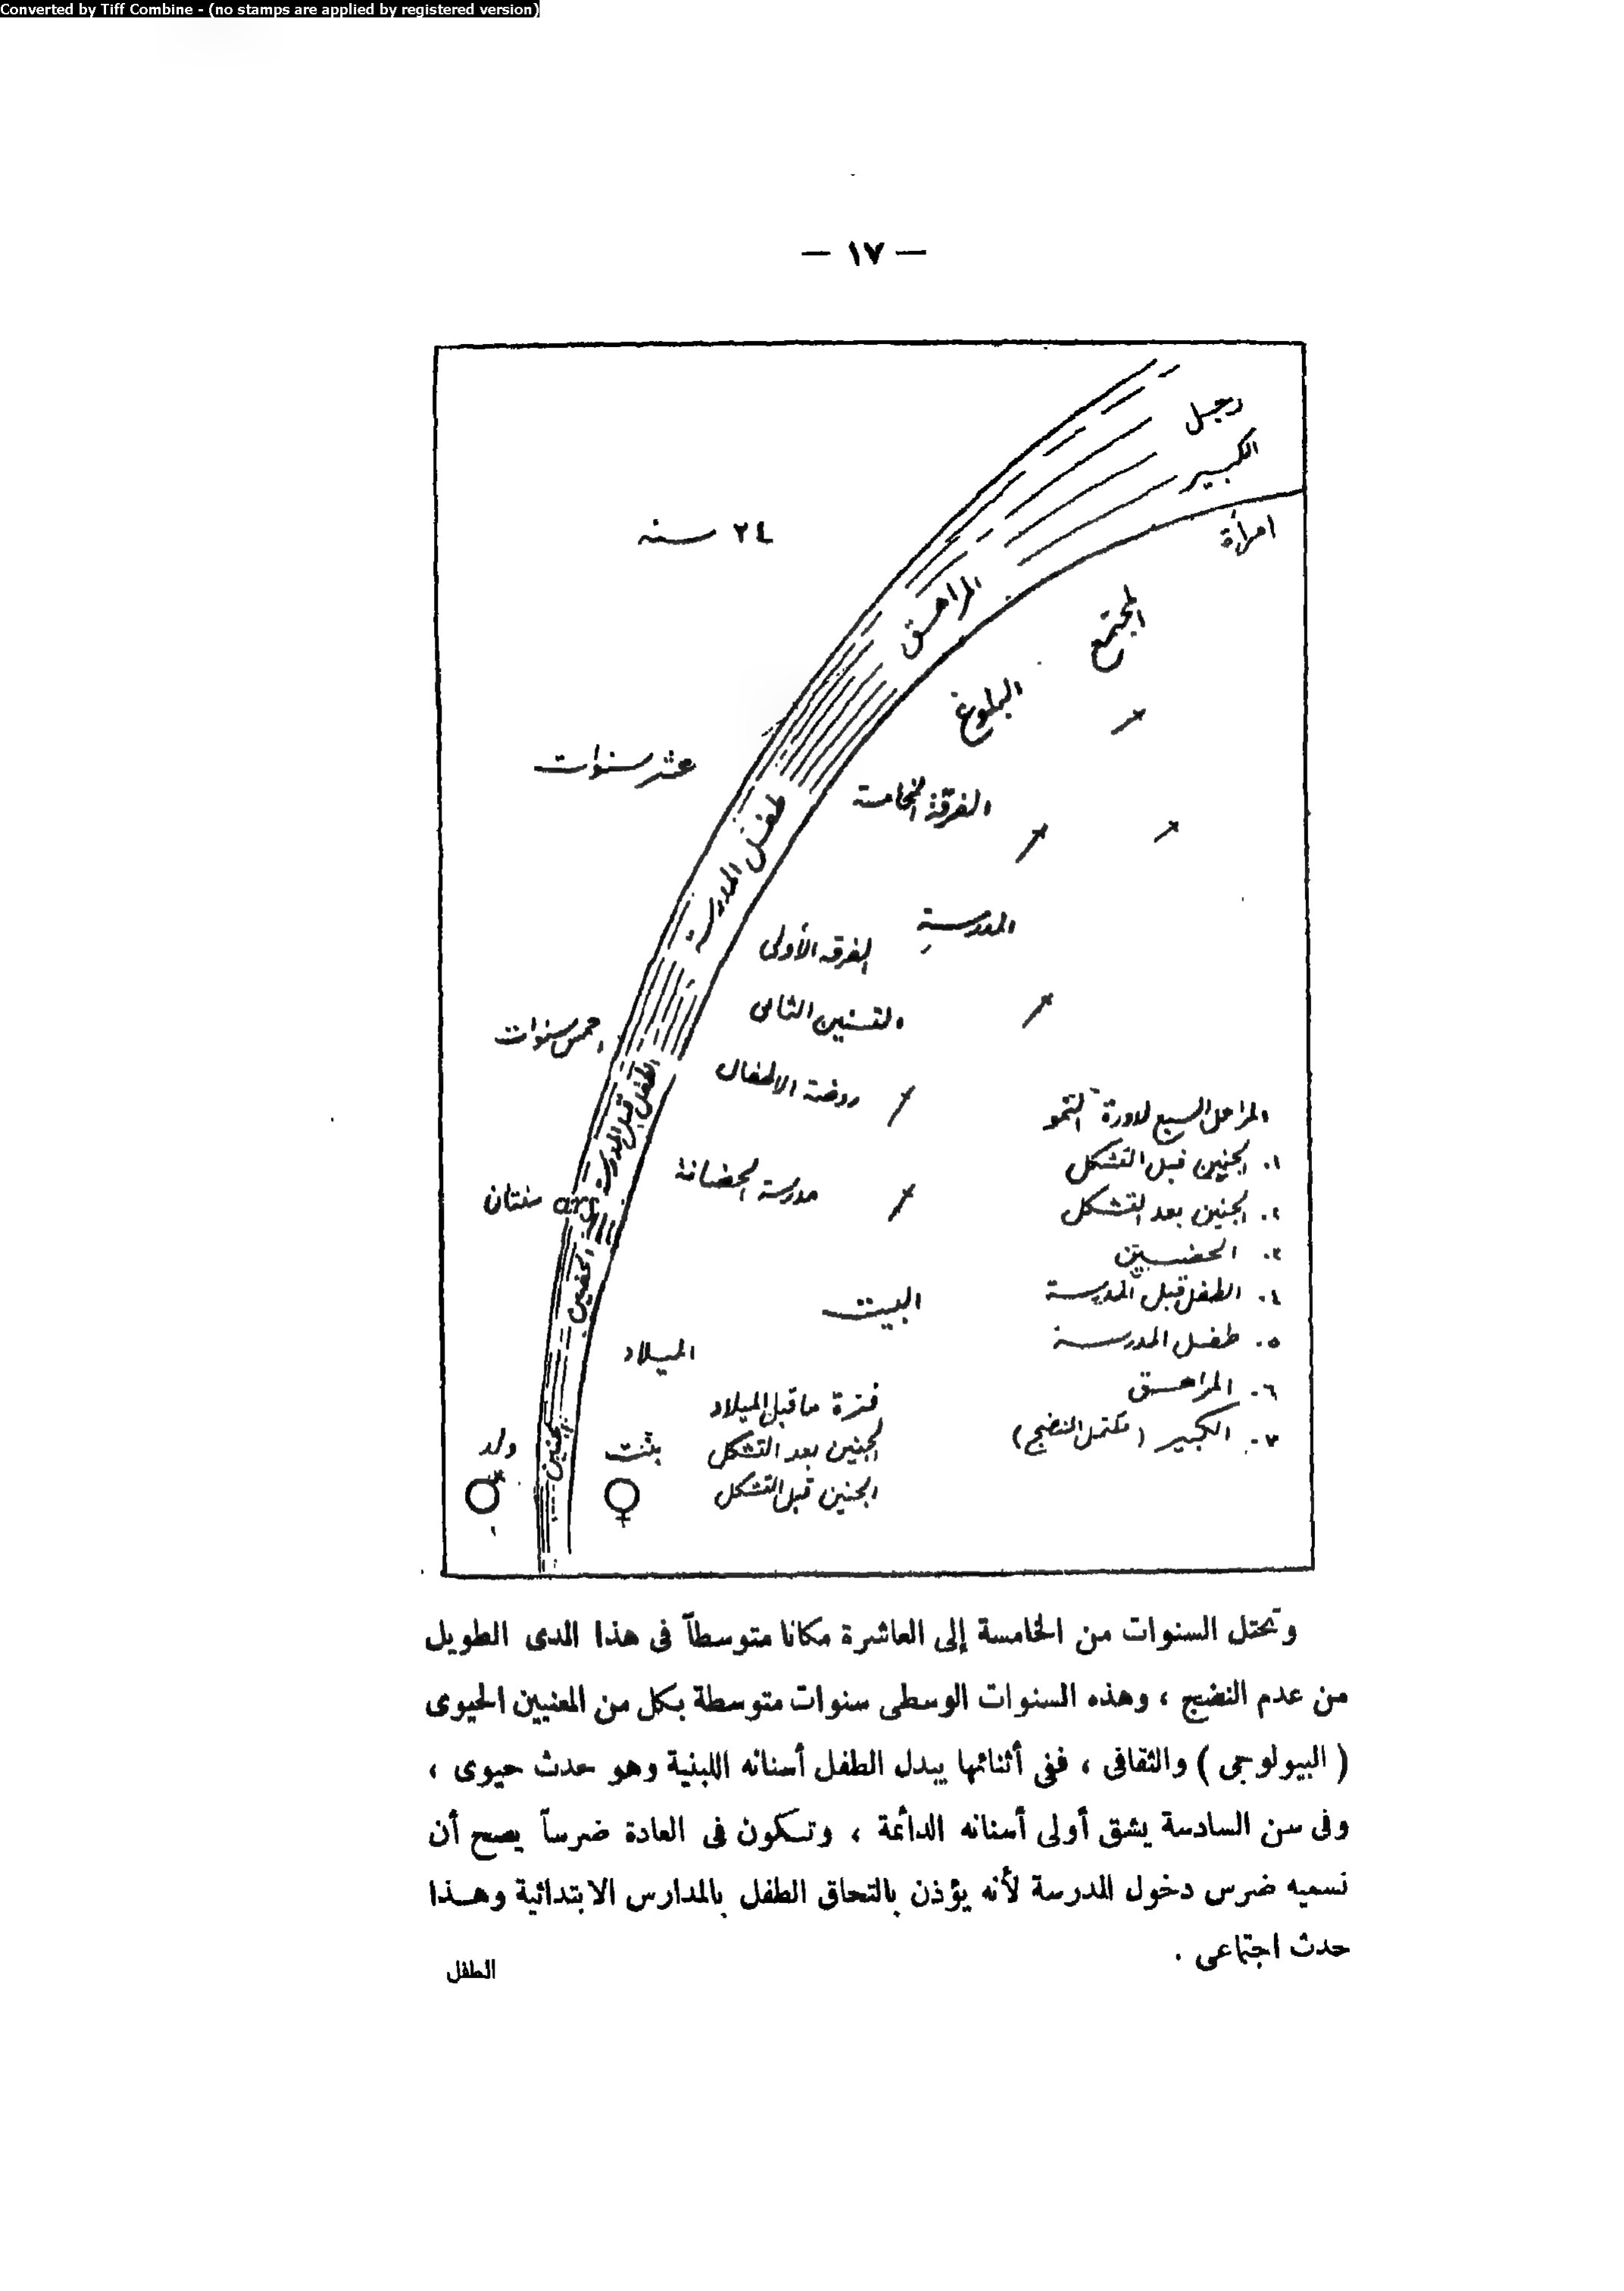 Converted by Tiff Combine - (no stamps are applied by registered version)
— ١٧ —
رجل
الكبير
امرأة
٢٤ سنه
المراهق
المجتمع
البلوغ
عشر سنوات
الفرقة الخامسة
طفل المدرسة
المدرسة
الفرقه الأولى
التسنين الثانى
خمس سنوات
روضة الاطفال
الطفل قبل المدرسة
مدرسة الحضانة
سنتان
الحضين
البيت
الميلاد
فترة ما قبل الميلاد
الجنين بعد التشكل
الجنين قبل التشكل
ولد
الجنين
بنت
المراحل السبع لدورة النمو
١. الجنين قبل التشكل
٢. الجنين بعد التشكل
٣. الحضين
٤. الطفل قبل المدرسة
٥. طفل المدرسة
٦. المراهق
٧. الكبير (مكتمل النضج)
وتحتل السنوات من الخامسة إلى العاشرة مكانا متوسطاً فى هذا المدى الطويل
من عدم النضج ، وهذه السنوات الوسطى سنوات متوسطة بكل من المعنيين الحيوى
( البيولوجى ) والثقافى ، ففى أثنائها يبدل الطفل أسنانه اللبنية وهو حدث حيوى ،
وفى سن السادسة يشق أولى أسنانه الدائمة ، وتكون فى العادة ضرساً يصح أن
نسميه ضرس دخول المدرسة لأنه يؤذن بالتحاق الطفل بالمدارس الابتدائية وهذا
حدث اجتماعى .
الطفل